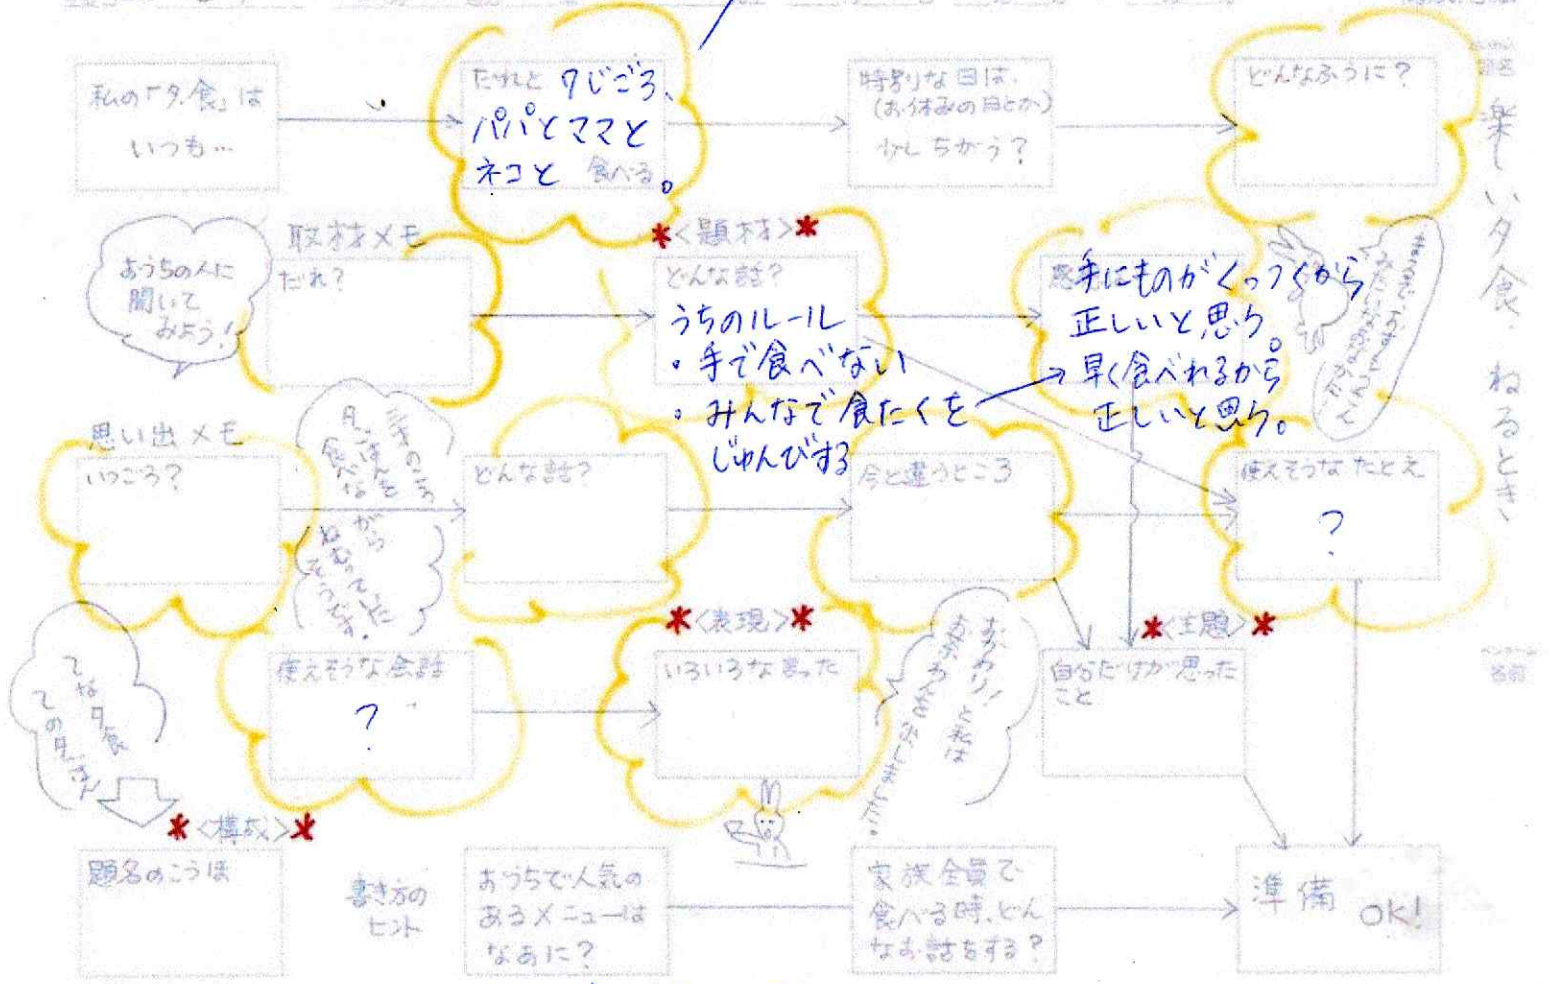 私の「夕食」は
いつも…
だれと 7じごろ、
パパとママと
ネコと 食べる。
特別な日は、
(お休みの日とか)
少しちがう?
どんなふうに?
題名
楽しい夕食、ねるとき、
おうちの人に
聞いて
みよう!
取材メモ
だれ?
*<題材>*
どんな話?
うちのルール
・手で食べない
・みんなで食たくを
じゅんびする
手にものがくっつくから
正しいと思う。
→早く食べれるから
正しいと思う。
思い出メモ
いつごろ?
夕ごはんを
食べな
がら
どんな話?
今と違うところ
使えそうなたとえ
?
使えそうな会話
?
*<表現>*
いろいろな言った
おかわり!と私は
*<主題>*
自分だけが思った
こと
名前
*<構成>*
題名のこうほ
書き方の
ヒント
おうちで人気の
あるメニューは
なあに?
家族全員で
食べる時、どん
なお話をする?
準備 OK!